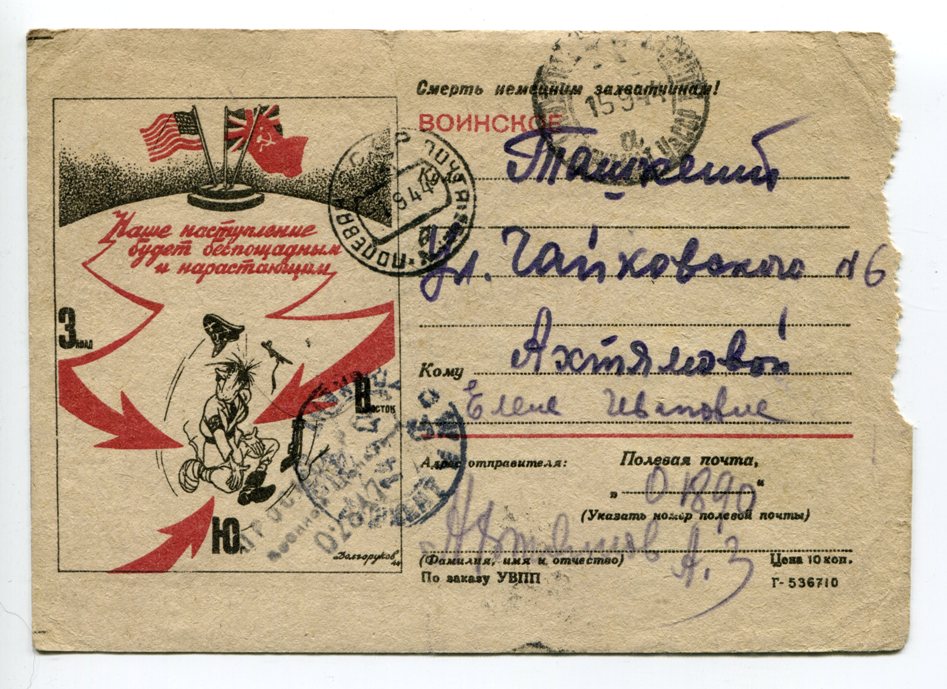 Смерть немецким захватчикам!
ВОИНСКОЕ
15 9 44
Ташкент
ул. Чайковского № 6
Кому Ахтямовой
Елене Ивановне
Адрес отправителя:
Полевая почта,
„ 01890 “
(Указать номер полевой почты)
А. З
(Фамилия, имя и отчество)
По заказу УВПП
Цена 10 коп.
Г-536710
Наше наступление
будет беспощадным
и нарастающим
Запад
Восток
Юг
Долгоруков
44
СССР ПОЧТА
9 44